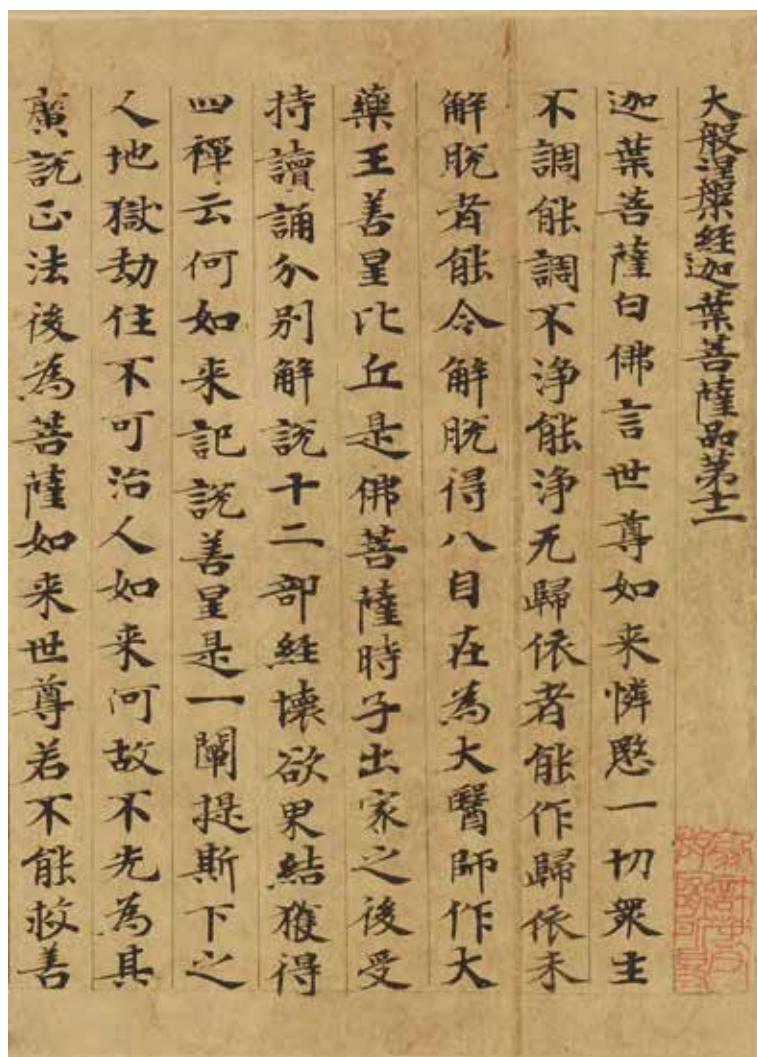 大般涅槃經迦葉菩薩品第十二
迦葉菩薩白佛言世尊如来憐愍一切衆生
不調能調不浄能浄无歸依者能作歸依未
解脱者能令解脱得八自在為大醫師作大
藥王善星比丘是佛菩薩時子出家之後受
持讀誦分别解說十二部經壞欲界結獲得
四禪云何如来記說善星是一闡提斯下之
人地獄劫住不可治人如来何故不先為其
廣說正法後為菩薩如来世尊若不能救善